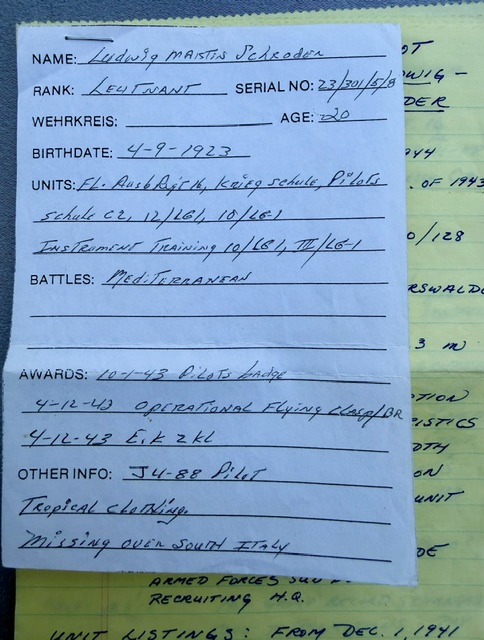 NAME: Ludwig Martin Schroder
RANK: Leutnant SERIAL NO: 23/301/5/8
WEHRKREIS: AGE: 20
BIRTHDATE: 4-9-1923
UNITS: FL. Ausb Rgt 16, Krieg schule, Pilots
schule C2, 12/LG1, 10/LG-1
Instrument Training 10/LG1, III/LG-1
BATTLES: Mediterranean
AWARDS: 10-1-43 Pilots badge
4-12-43 Operational Flying Clasp/BR
4-12-43 E.K 2 KL
OTHER INFO: J4-88 Pilot
Tropical clothing.
Missing over South Italy
OT
WIG -
DER
944
. OF 1943
0/128
RSWALDE
3 m
TION
ISTICS
DTH
ON
UNIT
DE
ARMED FORCES
RECRUITING H.Q.
UNIT LISTINGS: FROM DEC. 1, 1941